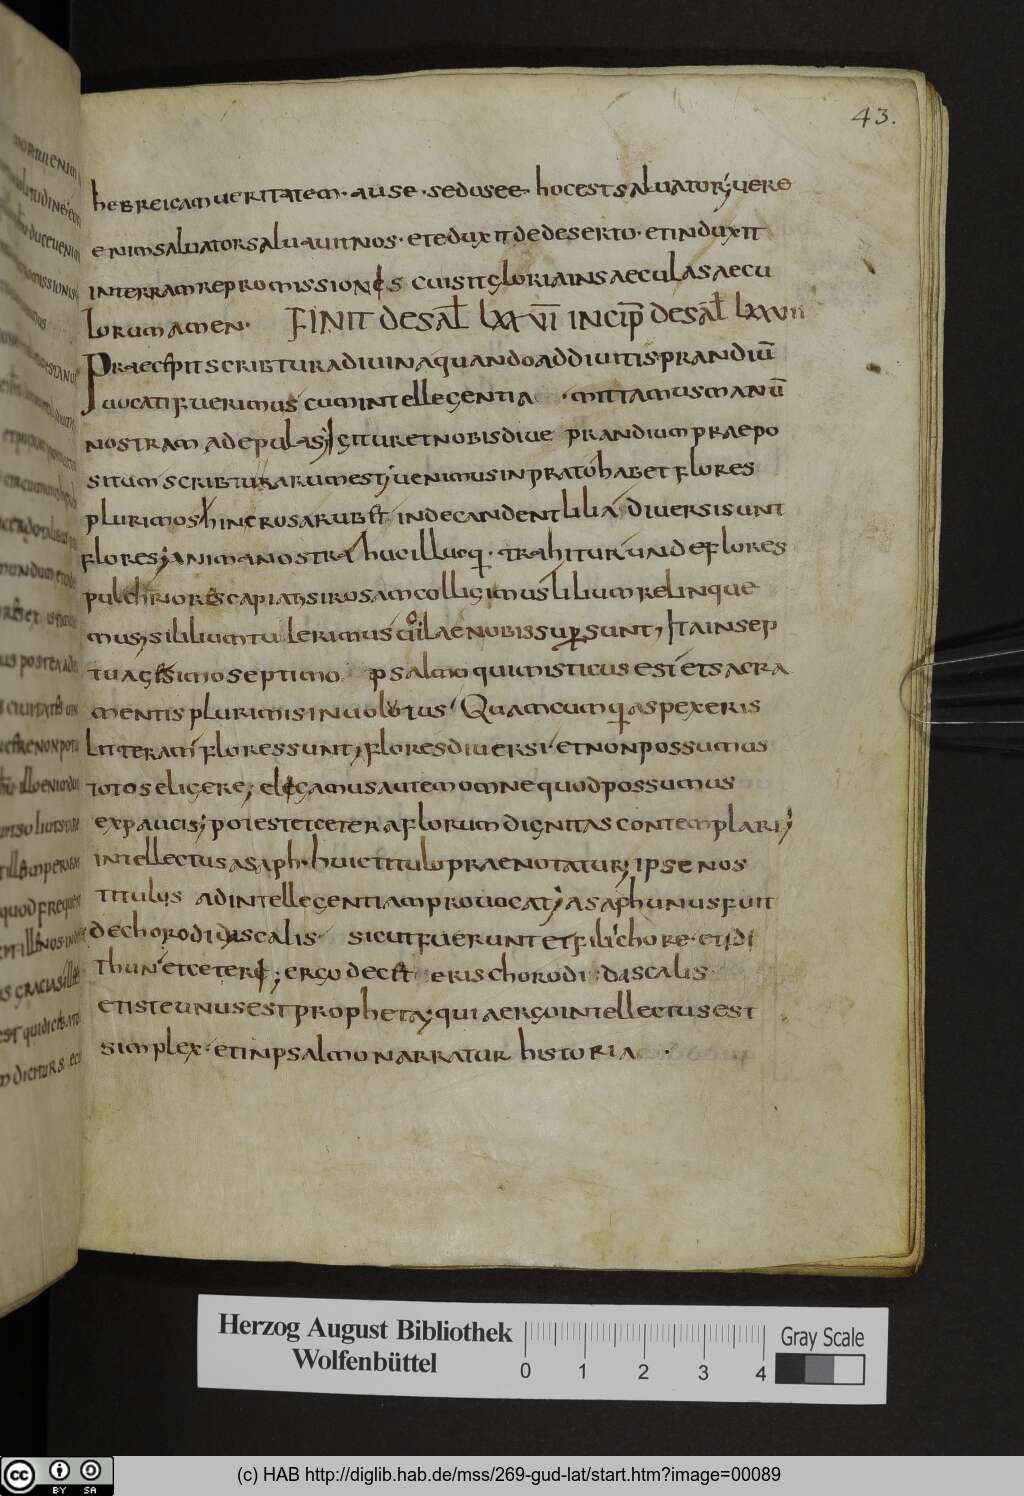 43.
hebreicam ueritatem · ause · sed osee · hoc est saluator; uere
enim saluator saluauit nos · et eduxit de deserto · et induxit
in terram repromissiones cui sit gloria in saecula saecu
lorum amen · FINIT DE SAL LXXVI INCIP DE SAL LXXVII
Praecepit scribtura diuina quando ad diuitis prandiū
uocati fuerimus cum intellegentia · mittamus manū
nostram ad epulas; Igitur et nobis diue prandium praepo
situm scribturarum est; uenimus in prato habet flores
plurimos hinc rosa rubet inde candent lilia diuersi sunt
flores; anima nostra huc illucq · trahitur unde flores
pulchriores capiat; si rosam colligimus lilium relinque
mus; si lilium tulerimus uiolae nobis supersunt, Ita in sep
tuagesimo septimo psalmo qui misticus est et sacra
mentis plurimis inuolutus Quamcumq aspexeris
litteram flores sunt, flores diuersi · et non possumus
totos eligere; elegamus autem omne quod possumus
ex paucis; potest et cetera florum dignitas contemplari;
intellectus asaph · huic titulo praenotatur; ipse nos
titulus ad intellegentiam prouocat; asaph unus fuit
de chorodidascalis sicut fuerunt et fili chore · et idi
thun et ceteri; ergo decet eris chorodi dascalis
et iste unus est propheta; qui a ergo intellectus est
simplex · et in psalmo narratur historia ·
Herzog August Bibliothek
Wolfenbüttel
0 1 2 3 4
Gray Scale
cc BY SA
(c) HAB http://diglib.hab.de/mss/269-gud-lat/start.htm?image=00089